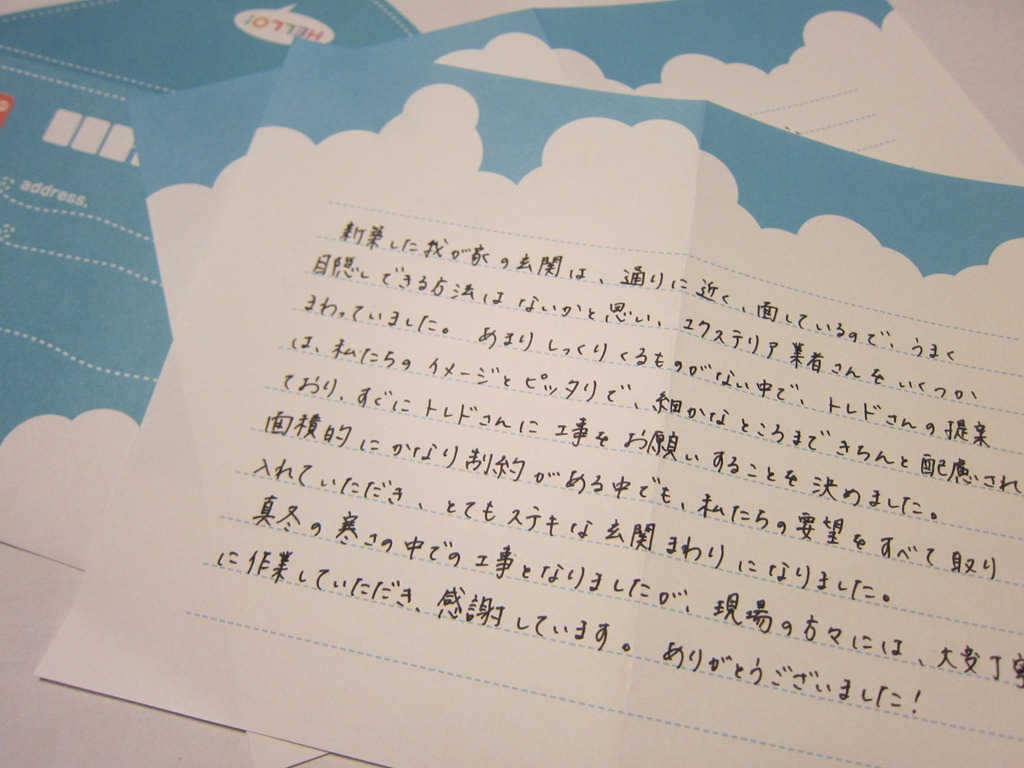 HELLO!
address.
新築した我が家の玄関は、通りに近く、面しているので、うまく
目隠しできる方法はないかと思い、エクステリア業者さんをいくつか
まわっていました。 あまりしっくりくるものがない中で、トレドさんの提案
は、私たちのイメージとピッタリで、細かなところまできちんと配慮され
ており、すぐにトレドさんに工事をお願いすることを決めました。
面積的にかなり制約がある中でも、私たちの要望をすべて取り
入れていただき、とてもステキな玄関まわりになりました。
真冬の寒さの中での工事となりましたが、現場の方々には、大変丁寧
に作業していただき、感謝しています。 ありがとうございました!